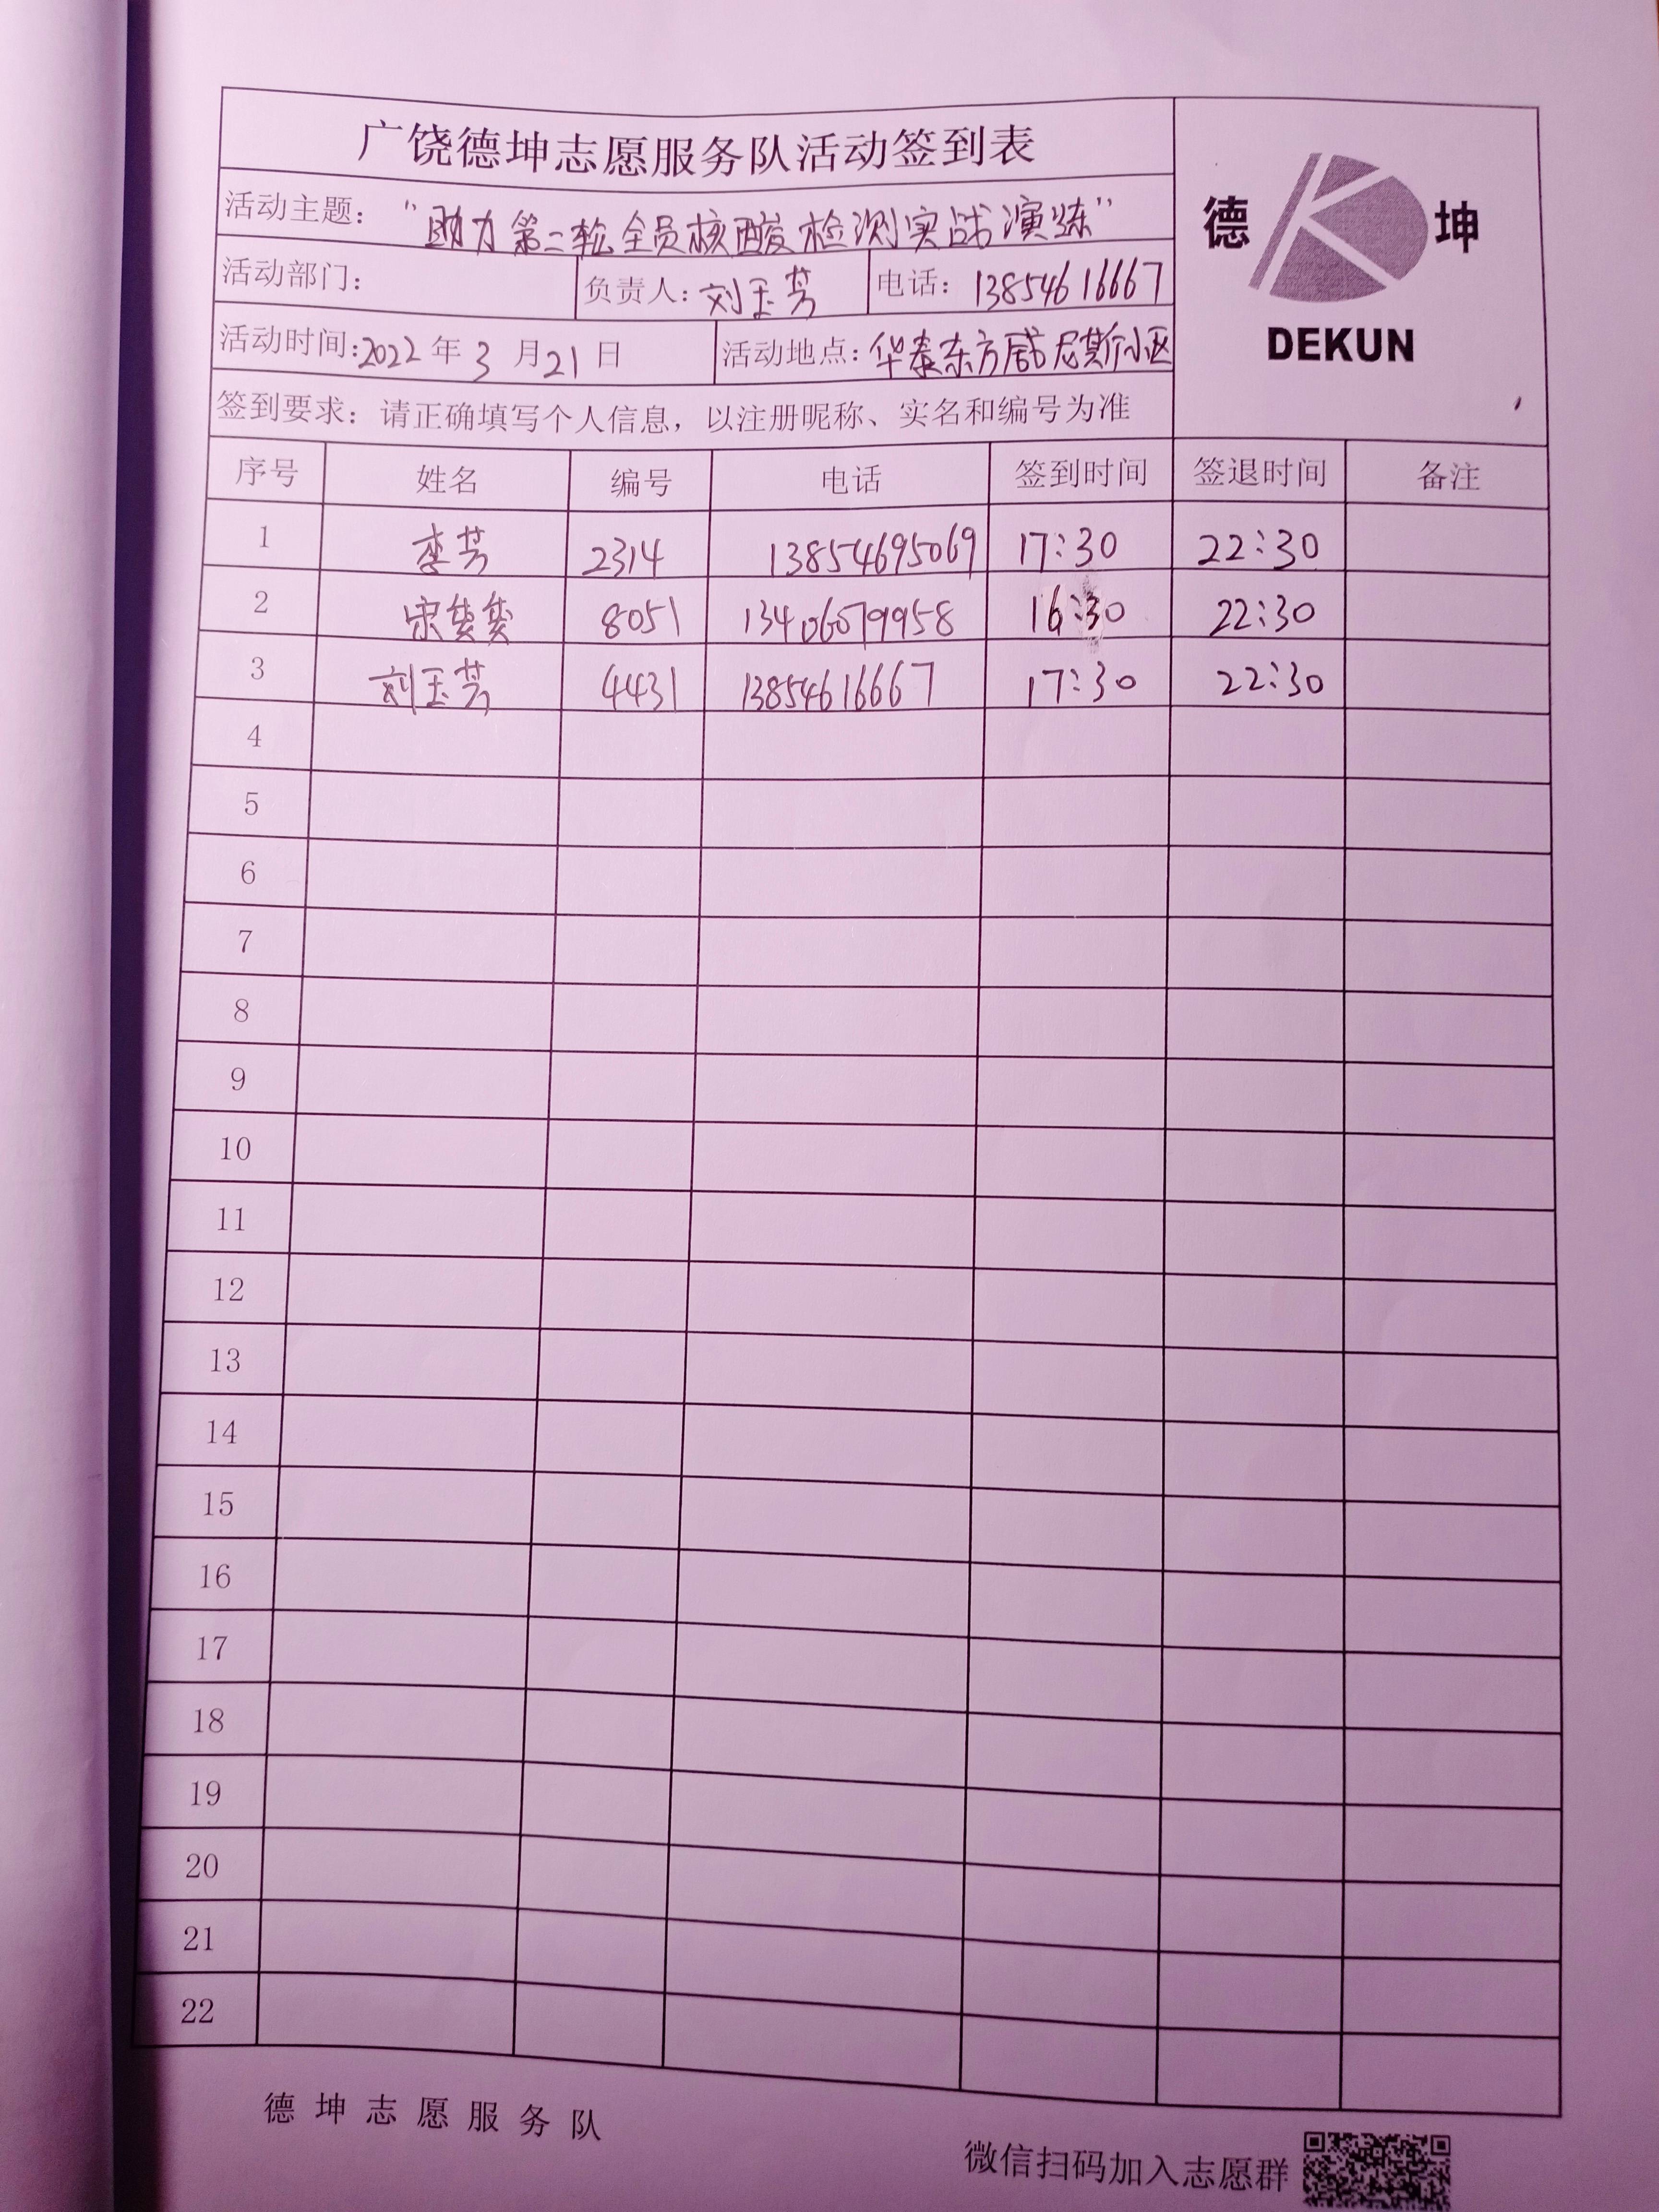 广饶德坤志愿服务队活动签到表
活动主题：“助力第二轮全员核酸检测实战演练”
德 坤
活动部门： 负责人：刘玉芳 电话：13854616667
活动时间：2022年3月21日 活动地点：华泰东方威尼斯小区
DEKUN
签到要求：请正确填写个人信息，以注册昵称、实名和编号为准
序号 姓名 编号 电话 签到时间 签退时间 备注
1 李芳 2314 13854695069 17:30 22:30
2 宋 8051 13406079958 16:30 22:30
3 刘玉芳 4431 13854616667 17:30 22:30
4
5
6
7
8
9
10
11
12
13
14
15
16
17
18
19
20
21
22
德坤志愿服务队
微信扫码加入志愿群